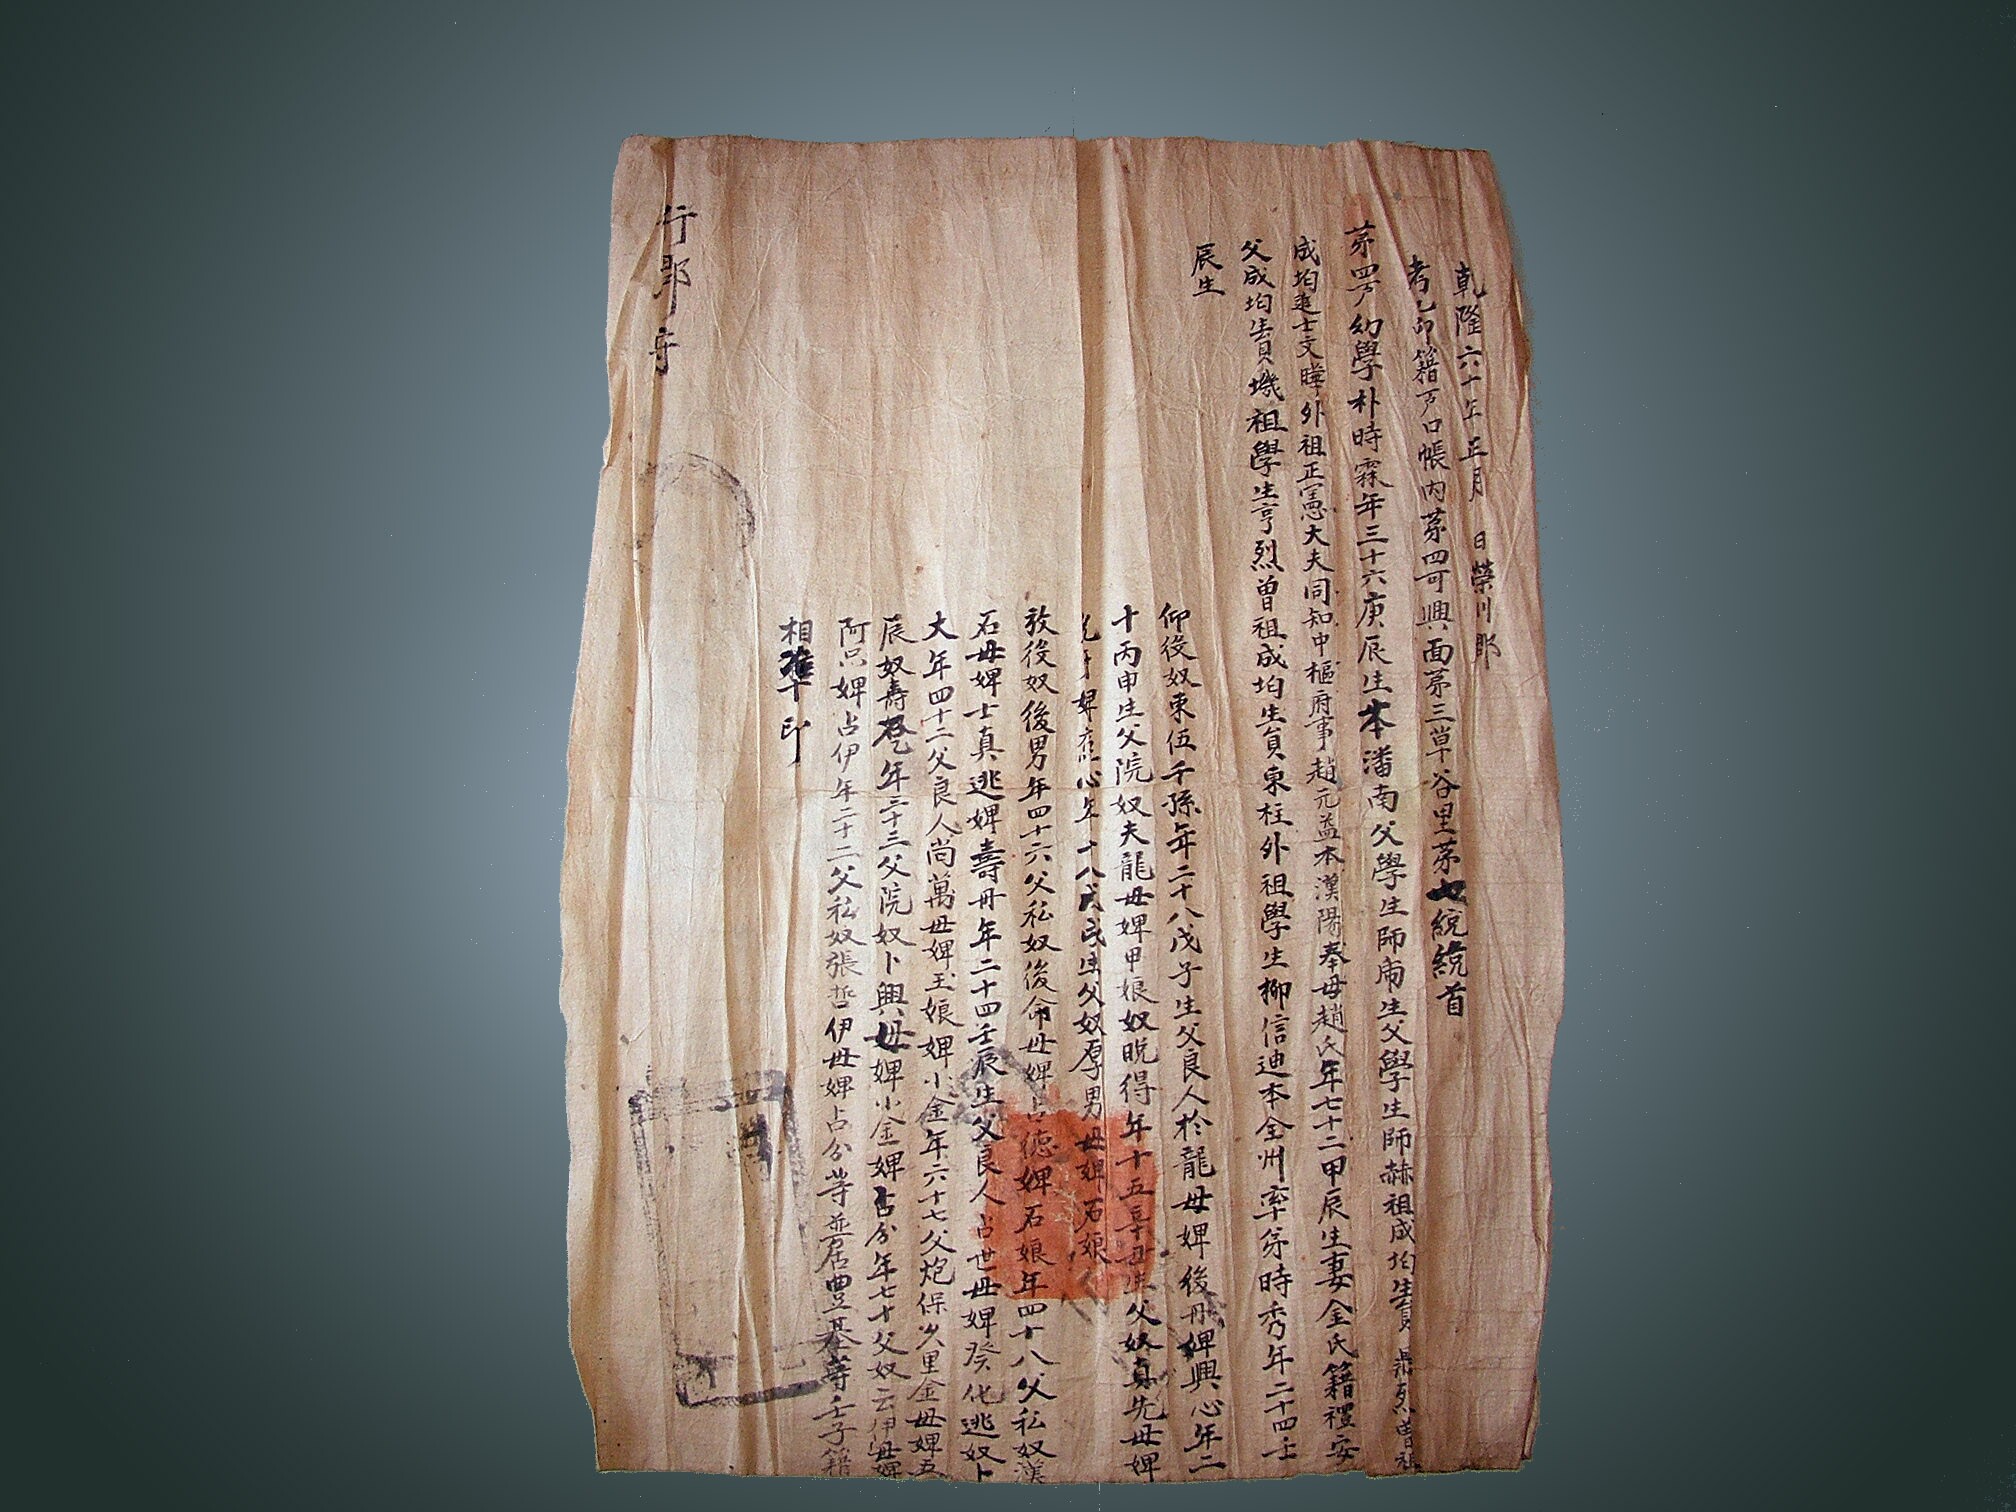 乾隆六十年正月 日榮川郡
考乙卯籍戶口帳內茅四可興面茅三草谷里茅七統統首
茅四戶幼學朴時霖年三十六庚辰生本潘南父學生師 生父學生師赫祖成均生員鼎烈曾祖
成均進士文曄外祖正憲大夫同知中樞府事趙元益本漢陽奉母趙氏年七十二甲辰生妻金氏籍禮安
父成均生員璣祖學生亨烈曾祖成均生員東柱外祖學生柳信迪本全州率弟時秀年二十四壬
辰生
仰役奴東伍千孫年二十八戊子生父良人於龍母婢後丹婢興心年二
十丙申生父院奴夫龍母婢甲娘奴晚得年十五辛丑生父奴真先母婢
婢應心年十八戊戌生父奴厚男母婢石娘
放役奴後男年四十六父私奴後命母婢占德婢石娘年四十八父私奴漢
石母婢士真逃婢壽丹年二十四壬辰生父良人占世母婢癸化逃奴卜
大年四十二父良人尚萬母婢玉娘婢小金年六十七父炮保火里金母婢五
辰奴壽 年三十三父院奴卜興母婢小金婢占分年七十父奴云伊母婢
阿只婢占伊年二十二父私奴張哲伊母婢占分等並居豊基等壬子籍
相準印
行郡守